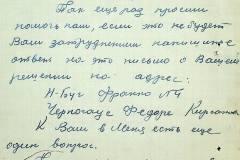 Так еще раз просим
помочь нам, если это не будет
Вам затруднит напишите
ответ на это письмо о Вашем
решении на адрес:
Н-Буг Франко №4
Федоре
К Вам в меня есть еще
один вопрос.